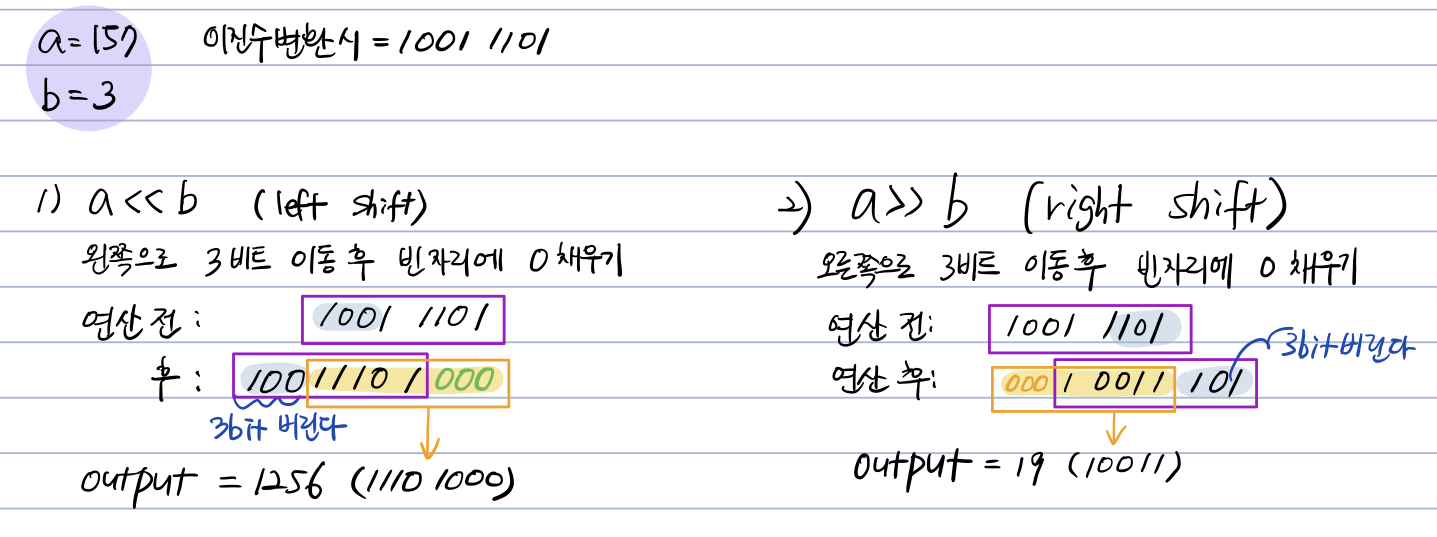 a=157 이진수변환시=1001 1101
b=3
1) a<<b (left shift)
왼쪽으로 3비트 이동 후 빈자리에 0 채우기
연산 전: 1001 1101
후: 100 1110 1 000
3bit 버린다
output = 1256 (1110 1000)
2) a>>b (right shift)
오른쪽으로 3비트 이동 후 빈자리에 0 채우기
연산 전: 1001 1101
3bit버린다
연산 후: 000 1 0011 101
output = 19 (10011)